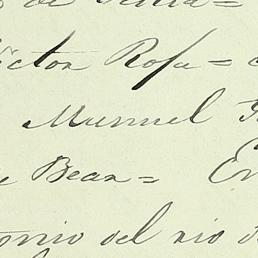 de
ictor Rosa =
Munuel
e Bear = En
onio del rio de